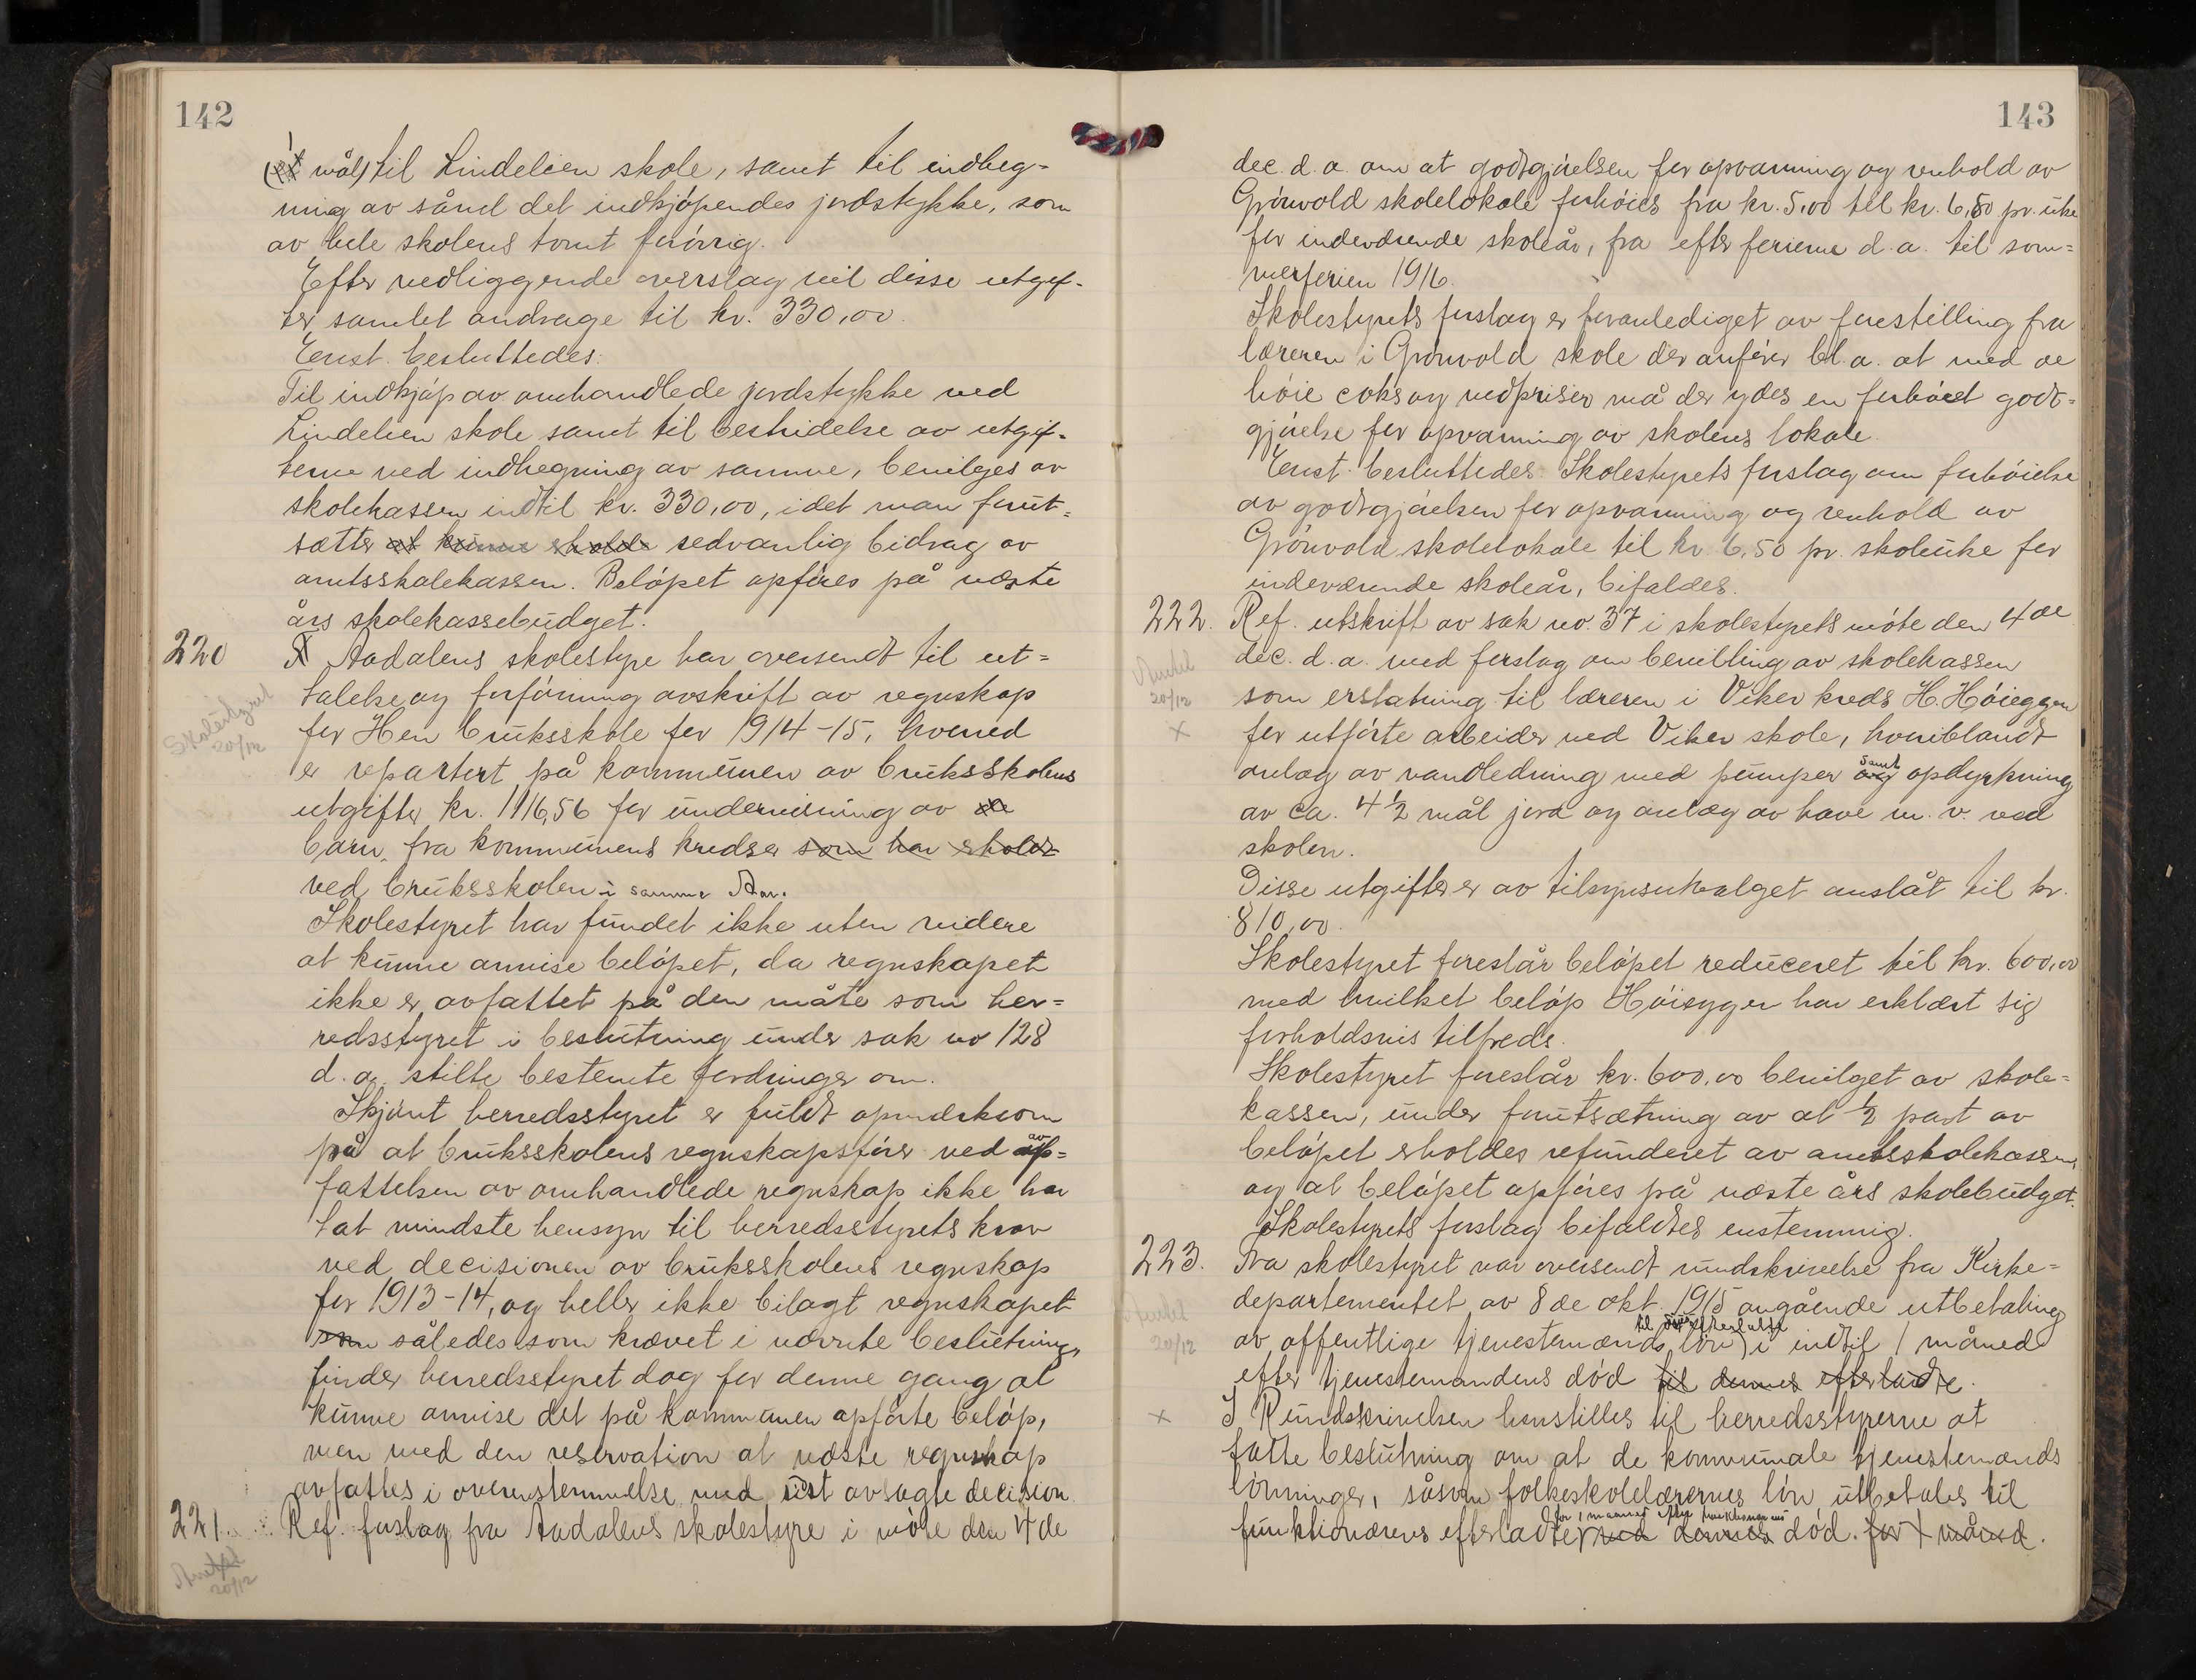 142
(et mål) til Lindelien skole, samt til indheg-
ning av sånd det indkjøpendes jordstykke, som
av hele skolens tomt forøvrig.
Efter vedliggende overslag vil disse utgif-
ter samlet andrage til kr. 330,00.
Enst. besluttedes:
Til indkjøp av omhandlede jordstykke ved
Lindelien skole samt til bestridelse av utgif-
terne ved indhegning av samme, bevilges av
skolekassen indtil kr. 330,00, idet man forut-
sætter at kunne erholde sedvanlig bidrag av
amtsskolekassen. Beløpet opføres på næste
års skolekassebudget.
220 Aadalens skolestyre har oversendt til ut-
talelse og forføining avskrift av regnskap
Skolestyret
20/12
for Hen bruksskole for 1914-15, hvorved
er repartert på kommunen av bruksskolens
utgifter kr. 1116,56 for undervisning av de
barn fra kommunens kredser som har erholdt
ved bruksskolen i samme Aar.
Skolestyret har fundet ikke uten videre
at kunne anvise beløpet, da regnskapet
ikke er avfattet på den måte som her-
redsstyret i beslutning under sak no 128
d.a. stilte bestemte fordringer om.
Skjønt herredsstyret er fuldt opmerksom
på at bruksskolens regnskapsfører ved av-
fattelsen av omhandlede regnskap ikke har
tat mindste hensyn til herredsstyrets krav
ved decisionen av bruksskolens regnskap
for 1913-14, og heller ikke bilagt regnskapet
som således som krævet i nævnte beslutning,
finder herredsstyret dog for denne gang at
kunne anvise det på kommunen opførte beløp,
men med den reservation at næste regnskap
avfattes i overenstemmelse med sist avsagte decision.
221. Ref. forslag fra Aadalens skolestyre i møte den 4de
20/12
143
dec. d.a. om at godtgjørelsen for opvarming og renhold av
Grønvold skolelokale forhøies fra kr. 5,00 til kr. 6,50 pr. uke
for indeværende skoleår, fra efter ferierne d.a. til som-
merferien 1916.
Skolestyrets forslag er foranlediget av forestilling fra
læreren i Grønvold skole der anfører bl.a. at med de
høie coks og vedpriser må der ydes en forhøiet godt-
gjørelse for opvarming av skolens lokale.
Enst. besluttedes: Skolestyrets forslag om forhøielse
av godtgjørelsen for opvarming og renhold av
Grønvold skolelokale til kr. 6,50 pr. skoleuke for
indeværende skoleår, bifaldes.
222. Ref. utskrift av sak no. 37 i skolestyrets møte den 4de
dec. d.a. med forslag om bevilling av skolekassen
20/12
som erstatning til læreren i Viker kreds H. Høieggen
x for utførte arbeider ved Viker skole, hvoriblandt
samt
anlæg av vandledning med pumper og opdyrkning
av ca. 4 1/2 mål jord og anlæg av have m.v. ved
skolen.
Disse utgifter er av tilsynsutvalget anslåt til kr.
810,00.
Skolestyret foreslår beløpet reduceret til kr. 600,00
med hvilket beløp Høieggen har erklært sig
forholdsvis tilfreds.
Skolestyret foreslår kr. 600,00 bevilget av skole-
kassen, under forutsætning av at 1/2 part av
beløpet erholdes refunderet av amtsskolekassen,
og at beløpet opføres på næste års skolebudget.
Skolestyrets forslag bifaldtes enstemmig.
223. Fra skolestyret var oversendt rundskrivelse fra Kirke-
departementet av 8de okt. 1915 angående utbetaling
20/12
til efterlatte
av offentlige tjenestemænds løn i indtil 1 måned
efter tjenestemandens død til dennes efterladte.
x I Rundskrivelsen henstilles til herredsstyrerne at
fatte beslutning om at de kommunale tjenestemænds
lønninger, såsom folkeskolelærernes løn utbetales til
for 1 maaned efter funktionærens
funktionærens efterladte ved dennes død. for 1 måned.